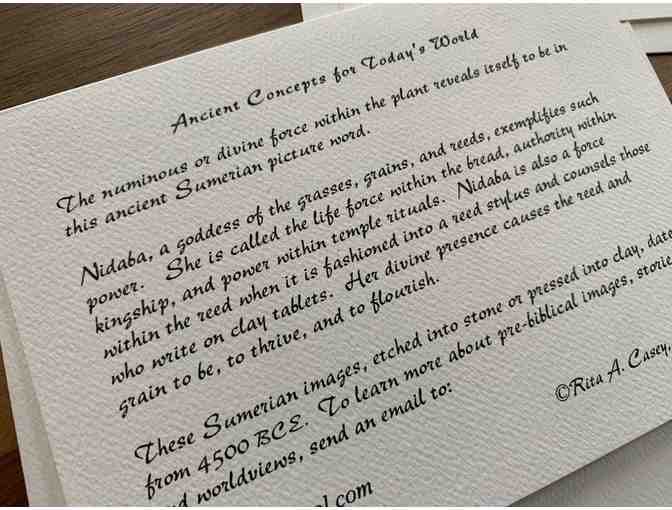 Ancient Concepts for Today's World
The numinous or divine force within the plant reveals itself to be in
this ancient Sumerian picture word.
Nidaba, a goddess of the grasses, grains, and reeds, exemplifies such
power. She is called the life force within the bread, authority within
kingship, and power within temple rituals. Nidaba is also a force
within the reed when it is fashioned into a reed stylus and counsels those
who write on clay tablets. Her divine presence causes the reed and
grain to be, to thrive, and to flourish.
These Sumerian images, etched into stone or pressed into clay, date
from 4500 BCE. To learn more about pre-biblical images, stories
worldviews, send an email to:
©Rita A. Casey,